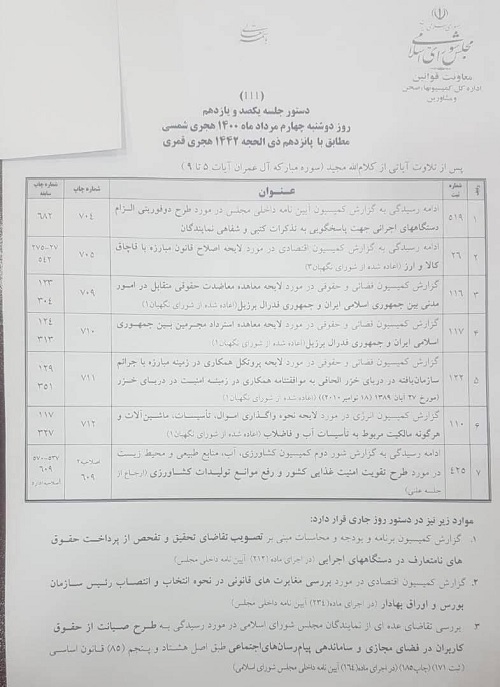 مجلس شورای اسلامی
معاونت قوانین
اداره کل کمیسیونها، صحن
و مشاورین
(۱۱۱)
دستور جلسه یکصد و یازدهم
روز دوشنبه چهارم مرداد ماه ۱۴۰۰ هجری شمسی
مطابق با پانزدهم ذی الحجه ۱۴۴۲ هجری قمری
پس از تلاوت آیاتی از کلام‌الله مجید (سوره مبارکه آل عمران آیات ۵ تا ۹)
ردیف شماره ثبت عنـــوان شماره چاپ شماره چاپ سابقه
۱ ۵۱۹ ادامه رسیدگی به گزارش کمیسیون آیین نامه داخلی مجلس در مورد طرح دوفوریتی الزام ۷۰۴ ۶۸۲
دستگاههای اجرائی جهت پاسخگویی به تذکرات کتبی و شفاهی نمایندگان
۲ ۲۶ ادامه رسیدگی به گزارش کمیسیون اقتصادی در مورد لایحه اصلاح قانون مبارزه با قاچاق ۷۰۵ ۲۷-۲۷۵
کالا و ارز (اعاده شده از شورای نگهبان۳) ۵۴۲
۳ ۱۱۶ گزارش کمیسیون قضائی و حقوقی در مورد لایحه معاهده معاضدت حقوقی متقابل در امور ۷۰۹ ۱۲۳
مدنی بین جمهوری اسلامی ایران و جمهوری فدرال برزیل(اعاده شده از شورای نگهبان۱) ۳۰۴
۴ ۱۱۷ گزارش کمیسیون قضائی و حقوقی در مورد لایحه معاهده استرداد مجرمین بین جمهوری ۷۱۰ ۱۲۴
اسلامی ایران و جمهوری فدرال برزیل(اعاده شده از شورای نگهبان۱) ۳۱۳
۵ ۱۲۲ گزارش کمیسیون قضائی و حقوقی در مورد لایحه پروتکل همکاری در زمینه مبارزه با جرائم ۷۱۱ ۱۲۹
سازمان‌یافته در دریای خزر الحاقی به موافقتنامه همکاری در زمینه امنیت در دریای خزر ۳۵۱
(مورخ ۲۷ آبان ۱۳۸۹ (۱۸ نوامبر ۲۰۱۰)) (اعاده شده از شورای نگهبان۱)
۶ ۱۱۰ گزارش کمیسیون انرژی در مورد لایحه نحوه واگذاری اموال، تأسیسات، ماشین آلات و ۷۱۲ ۱۱۷
هرگونه مالکیت مربوط به تأسیسات آب و فاضلاب (اعاده شده از شورای نگهبان۱) ۳۲۷
۷ ۴۲۵ ادامه رسیدگی به گزارش شور دوم کمیسیون کشاورزی، آب، منابع طبیعی و محیط زیست اصلاحیه۲ ۵۳۷-۵۷۰
در مورد طرح تقویت امنیت غذایی کشور و رفع موانع تولیدات کشاورزی (ارجاع از ۶۰۹ ۶۰۹
جلسه علنی)
موارد زیر نیز در دستور روز جاری قرار دارد:
۱. گزارش کمیسیون برنامه و بودجه و محاسبات مبنی بر تصویب تقاضای تحقیق و تفحص از پرداخت حقوق
های نامتعارف در دستگاههای اجرایی (در اجرای ماده (۲۱۲) آیین نامه داخلی مجلس)
۲. گزارش کمیسیون اقتصادی در مورد بررسی مغایرت های قانونی در نحوه انتخاب و انتصاب رئیس سازمان
بورس و اوراق بهادار (در اجرای ماده(۲۳۴) آیین نامه داخلی مجلس)
۳ بررسی تقاضای عده ای از نمایندگان مجلس شورای اسلامی در مورد رسیدگی به طرح صیانت از حقوق
کاربران در فضای مجازی و ساماندهی پیام‌رسان‌های‌اجتماعی طبق اصل هشتاد و پنجم (۸۵) قانون اساسی
(ثبت ۱۷۱) (چاپ۱۸۵) (در اجرای ماده(۱۶۴) آیین نامه داخلی مجلس شورای اسلامی)